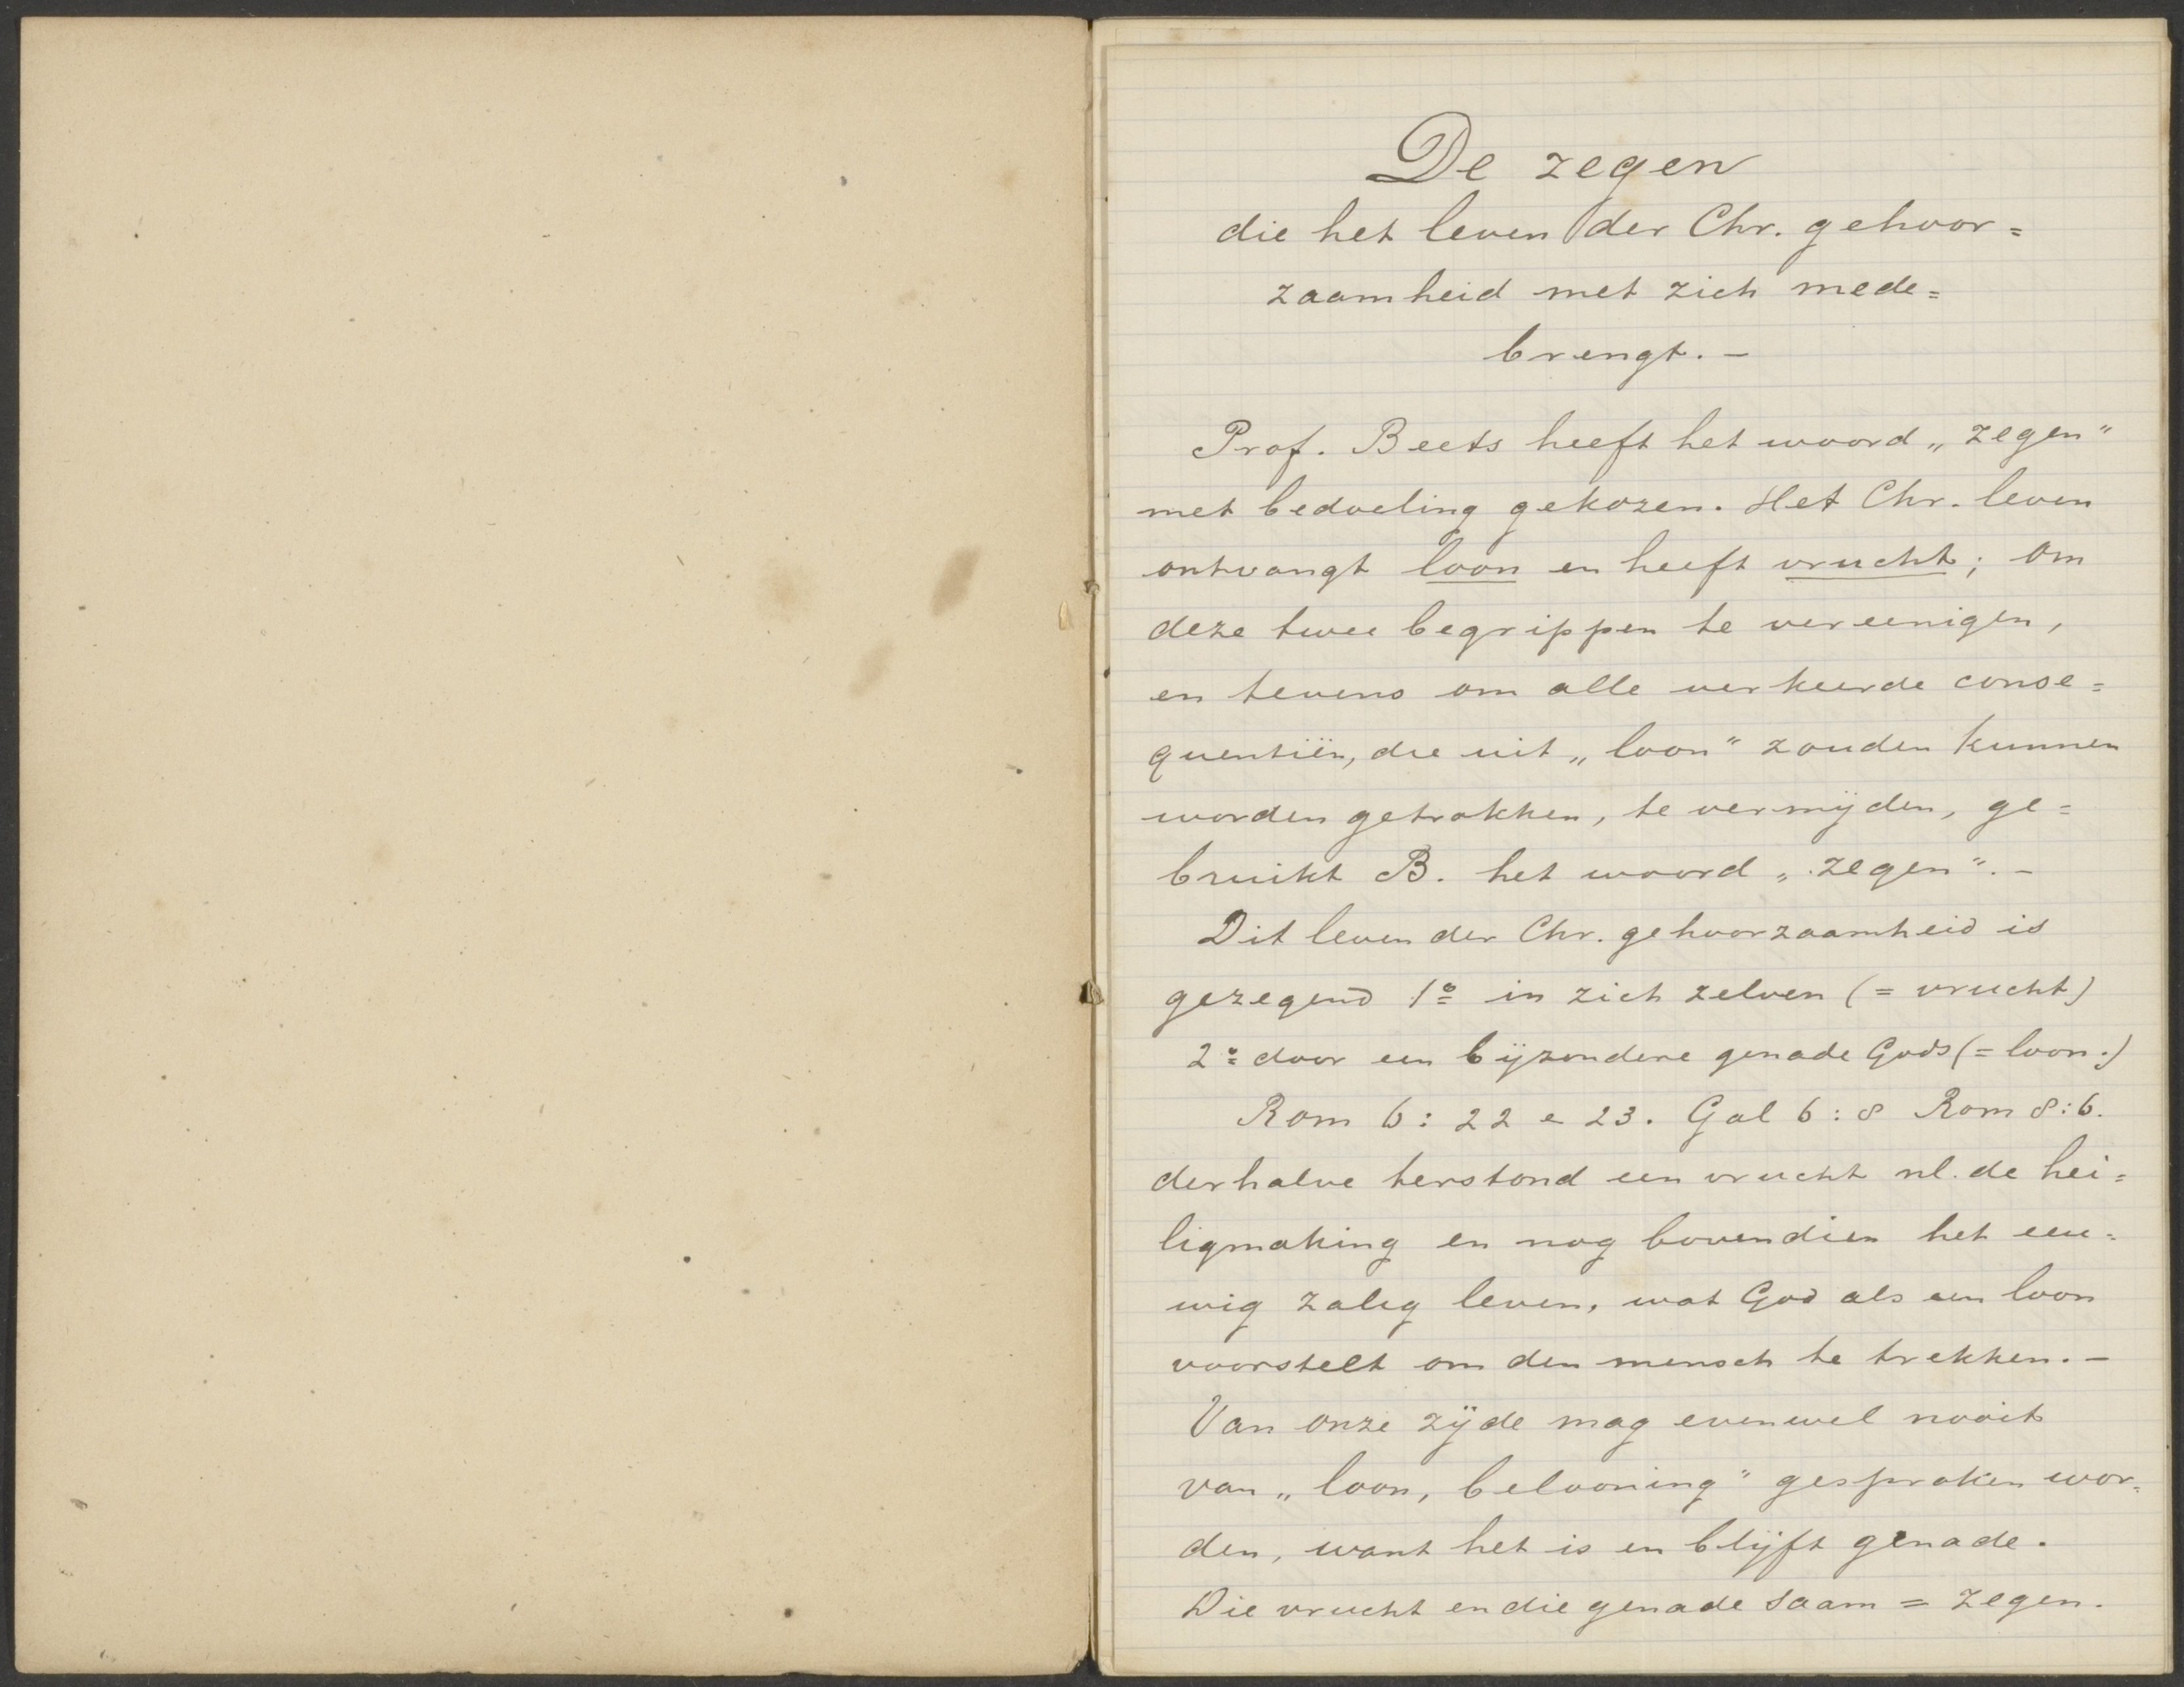 De zegen
die het leven der Chr. gehoor=
zaamheid met zich mede=
brengt. –
Prof. Beets heeft het woord „zegen"
met bedoeling gekozen. Het Chr. leven
ontvangt loon en heeft vrucht; om
deze twee begrippen te vereenigen,
en tevens om alle verkeerde conse=
quentiën, die uit „loon" zouden kunnen
worden getrokken, te vermijden, ge=
bruikt B. het woord „zegen". –
Dit leven der Chr. gehoorzaamheid is
gezegend 1º in zich zelven (= vrucht)
2º door een bijzondere genade Gods (= loon.)
Rom 6: 22 e 23. Gal 6: 8 Rom 8: 6.
derhalve terstond een vrucht nl. de hei=
ligmaking en nog bovendien het eeu=
wig zalig leven, wat God als een loon
voorstelt om den mensch te trekken. –
Van onze zijde mag evenwel nooit
van „loon, belooning" gesproken wor=
den, want het is en blijft genade.
Die vrucht en die genade saam = zegen.